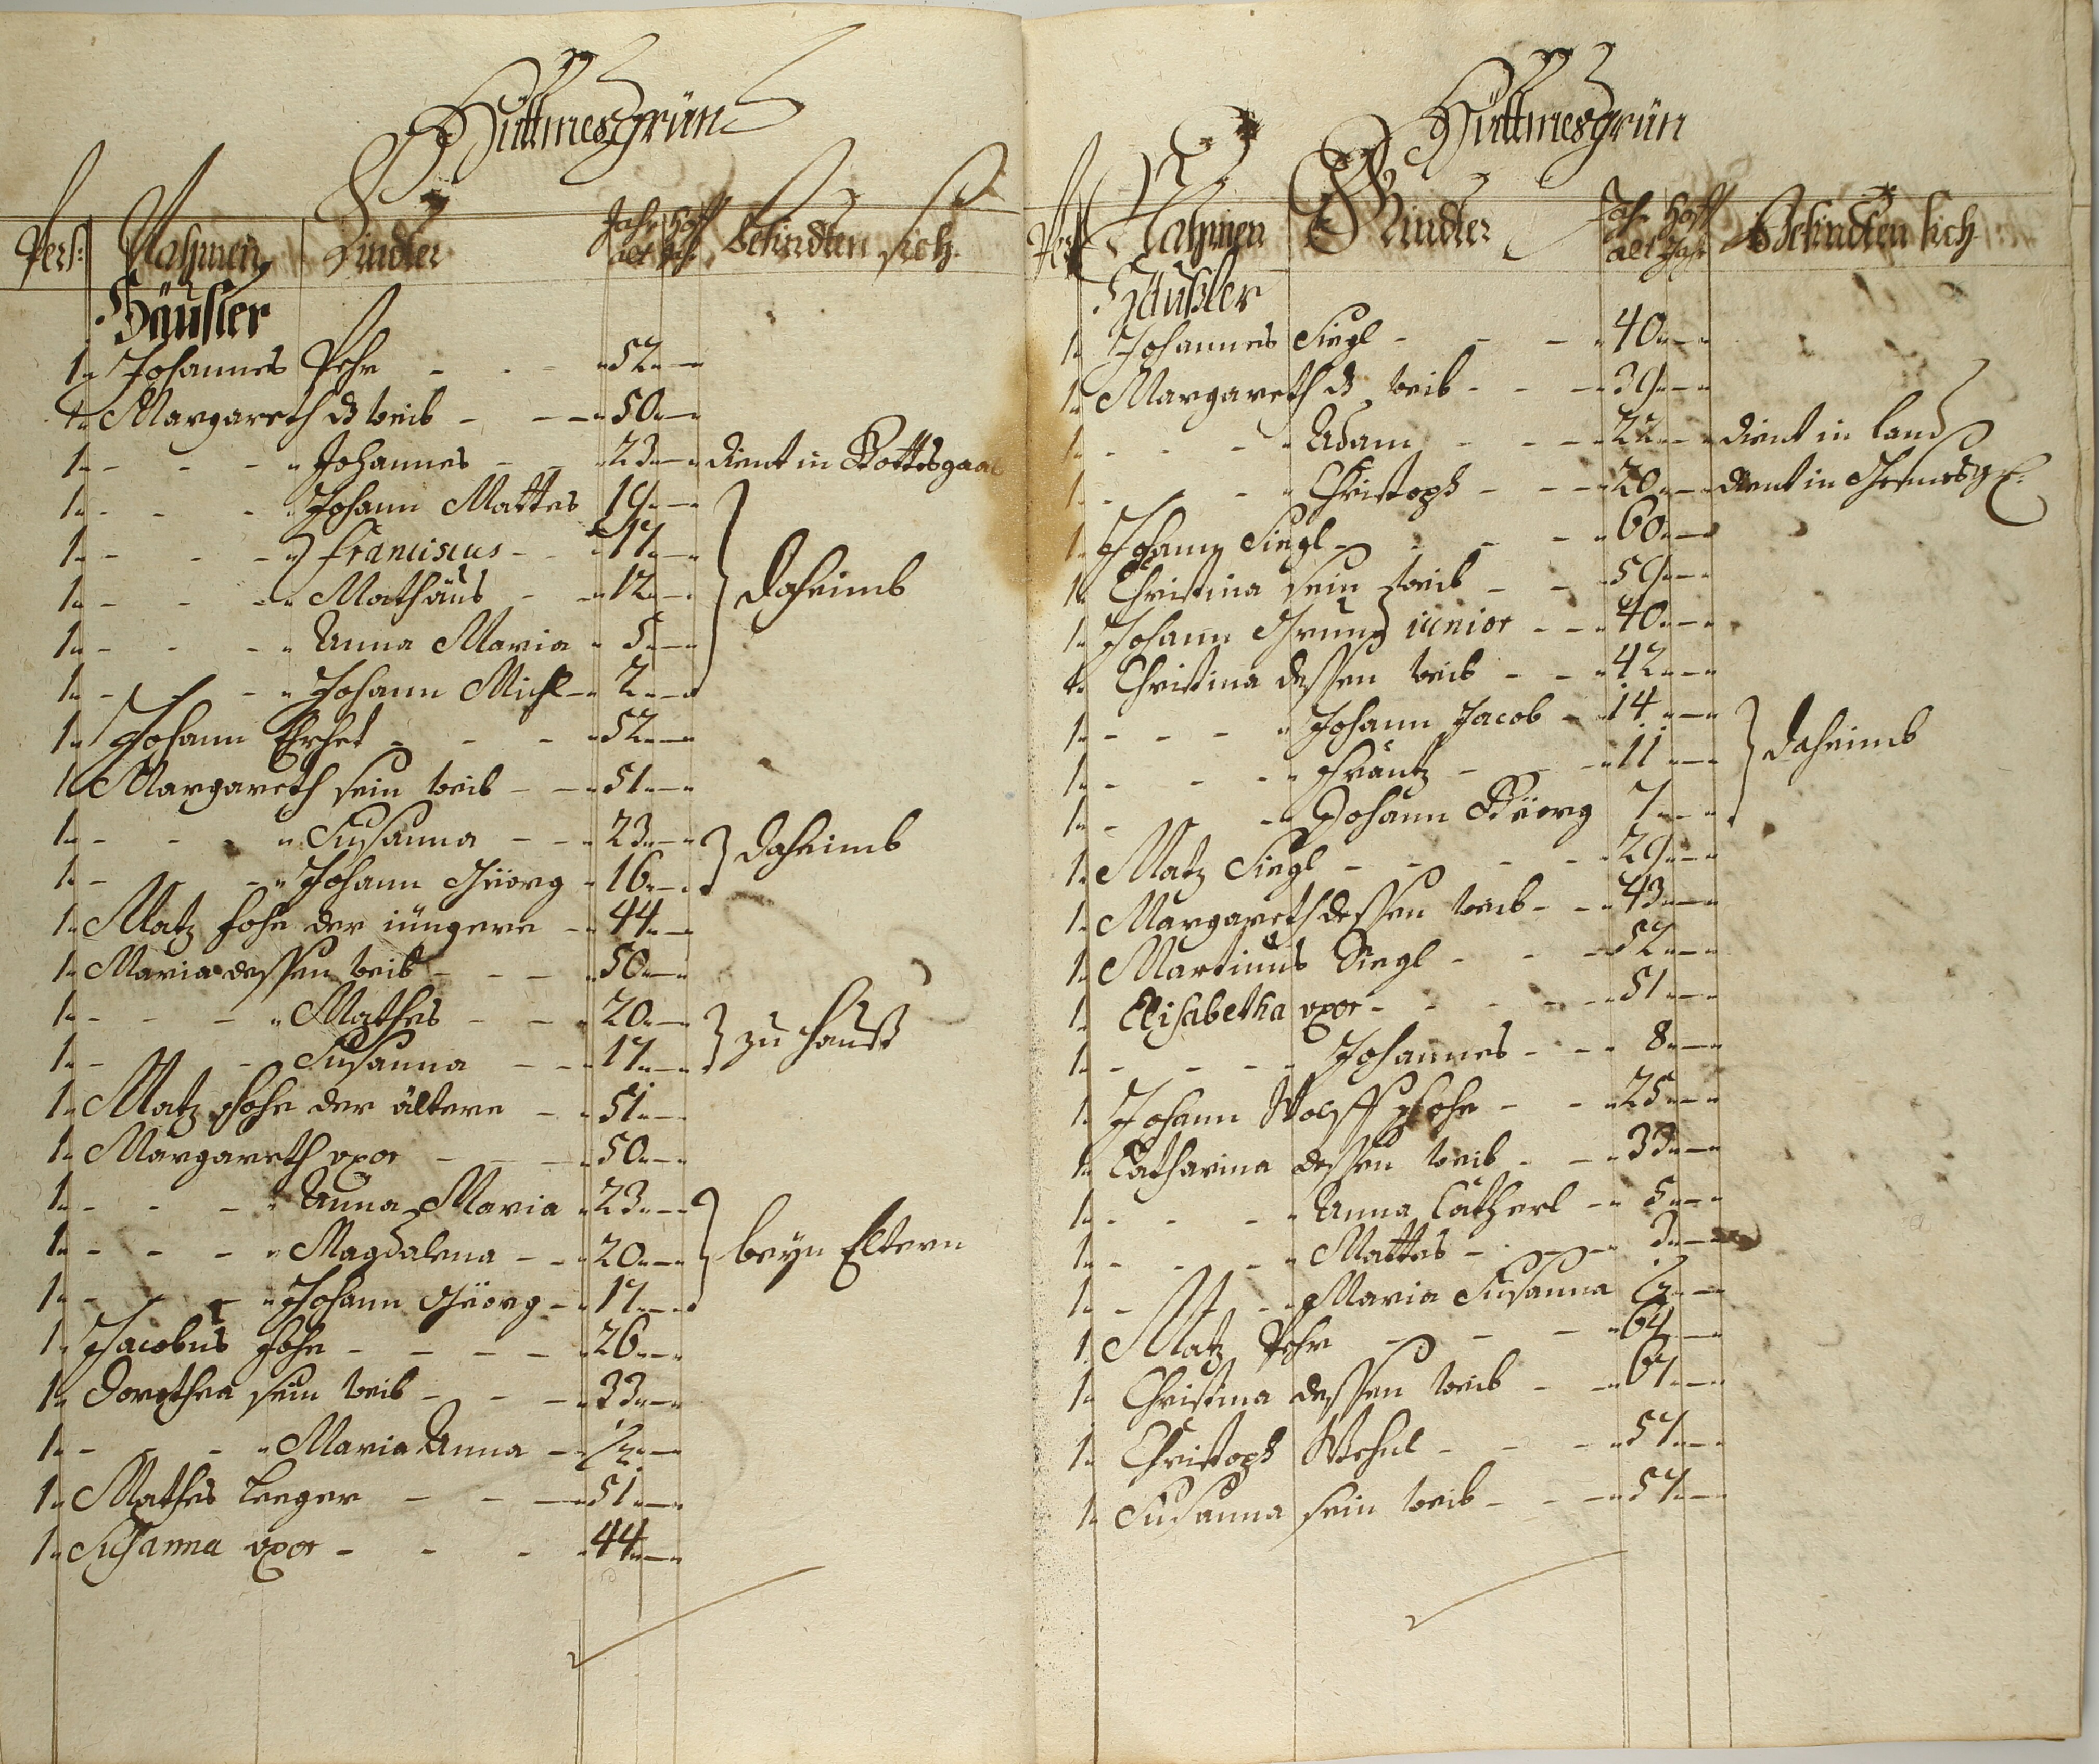 Hüttmesgrün
Pers: Nahmen Kinder Jahr alt Hoff Jahr Befindten sich
Häusler
1 Johannes Pehr 52
1 Margareth d weib 50
1 Johannes 23 dient in Gottesgaab
1 Johann Mattes 19
1 Franciscus 17
1 Mathäus 12 daheimb
1 Anna Maria 5
1 Johann Michl 2
1 Johann 52
1 Margareth sein weib 51
1 Susanna 23 daheimb
1 Johann Geörg 16
1 Matz Hohe der jüngere 44
1 Maria dessen weib 50
1 Mathes 20 zu Hauß
1 Susanna 17
1 Matz Hohe der ältere 51
1 Margareth uxor 50
1 Anna Maria 23
1 Magdalena 20 beÿn Eltern
1 Johann Geörg 17
1 Jacobus Hohe 26
1 Dorothea sein weib 33
1 Maria Anna 1/2
1 Mathes Leeger 51
1 Susanna uxor 44
Hüttmesgrün
Pers Nahmen Kinder Jahr alt Hoff Jahr Befindten sich
Häußler
1 Johannes Siegl 40
1 Margareth d weib 39
1 Adam 22 dient in Land
1 Christoph 20 dient in
1 Johann Siegl 60
1 Christina sein weib 59
1 Johann Grund junior 40
1 Christina dessen weib 42
1 Johann Jacob 14
1 Frantz 11 daheimb
1 Johann Geörg 7
1 Matz Siegl 29
1 Margareth dessen weib 43
1 Martinus Siegl 52
1 Elisabetha uxor 51
1 Johannes 8
1 Johann Wolff Hohe 25
1 Catharina dessen weib 33
1 Anna Catherl 5
1 Mattes 3
1 Maria Susanna 1/2
1 Matz Pehr 64
1 Christina dessen weib 67
1 Christoph 57
1 Susanna sein weib 57